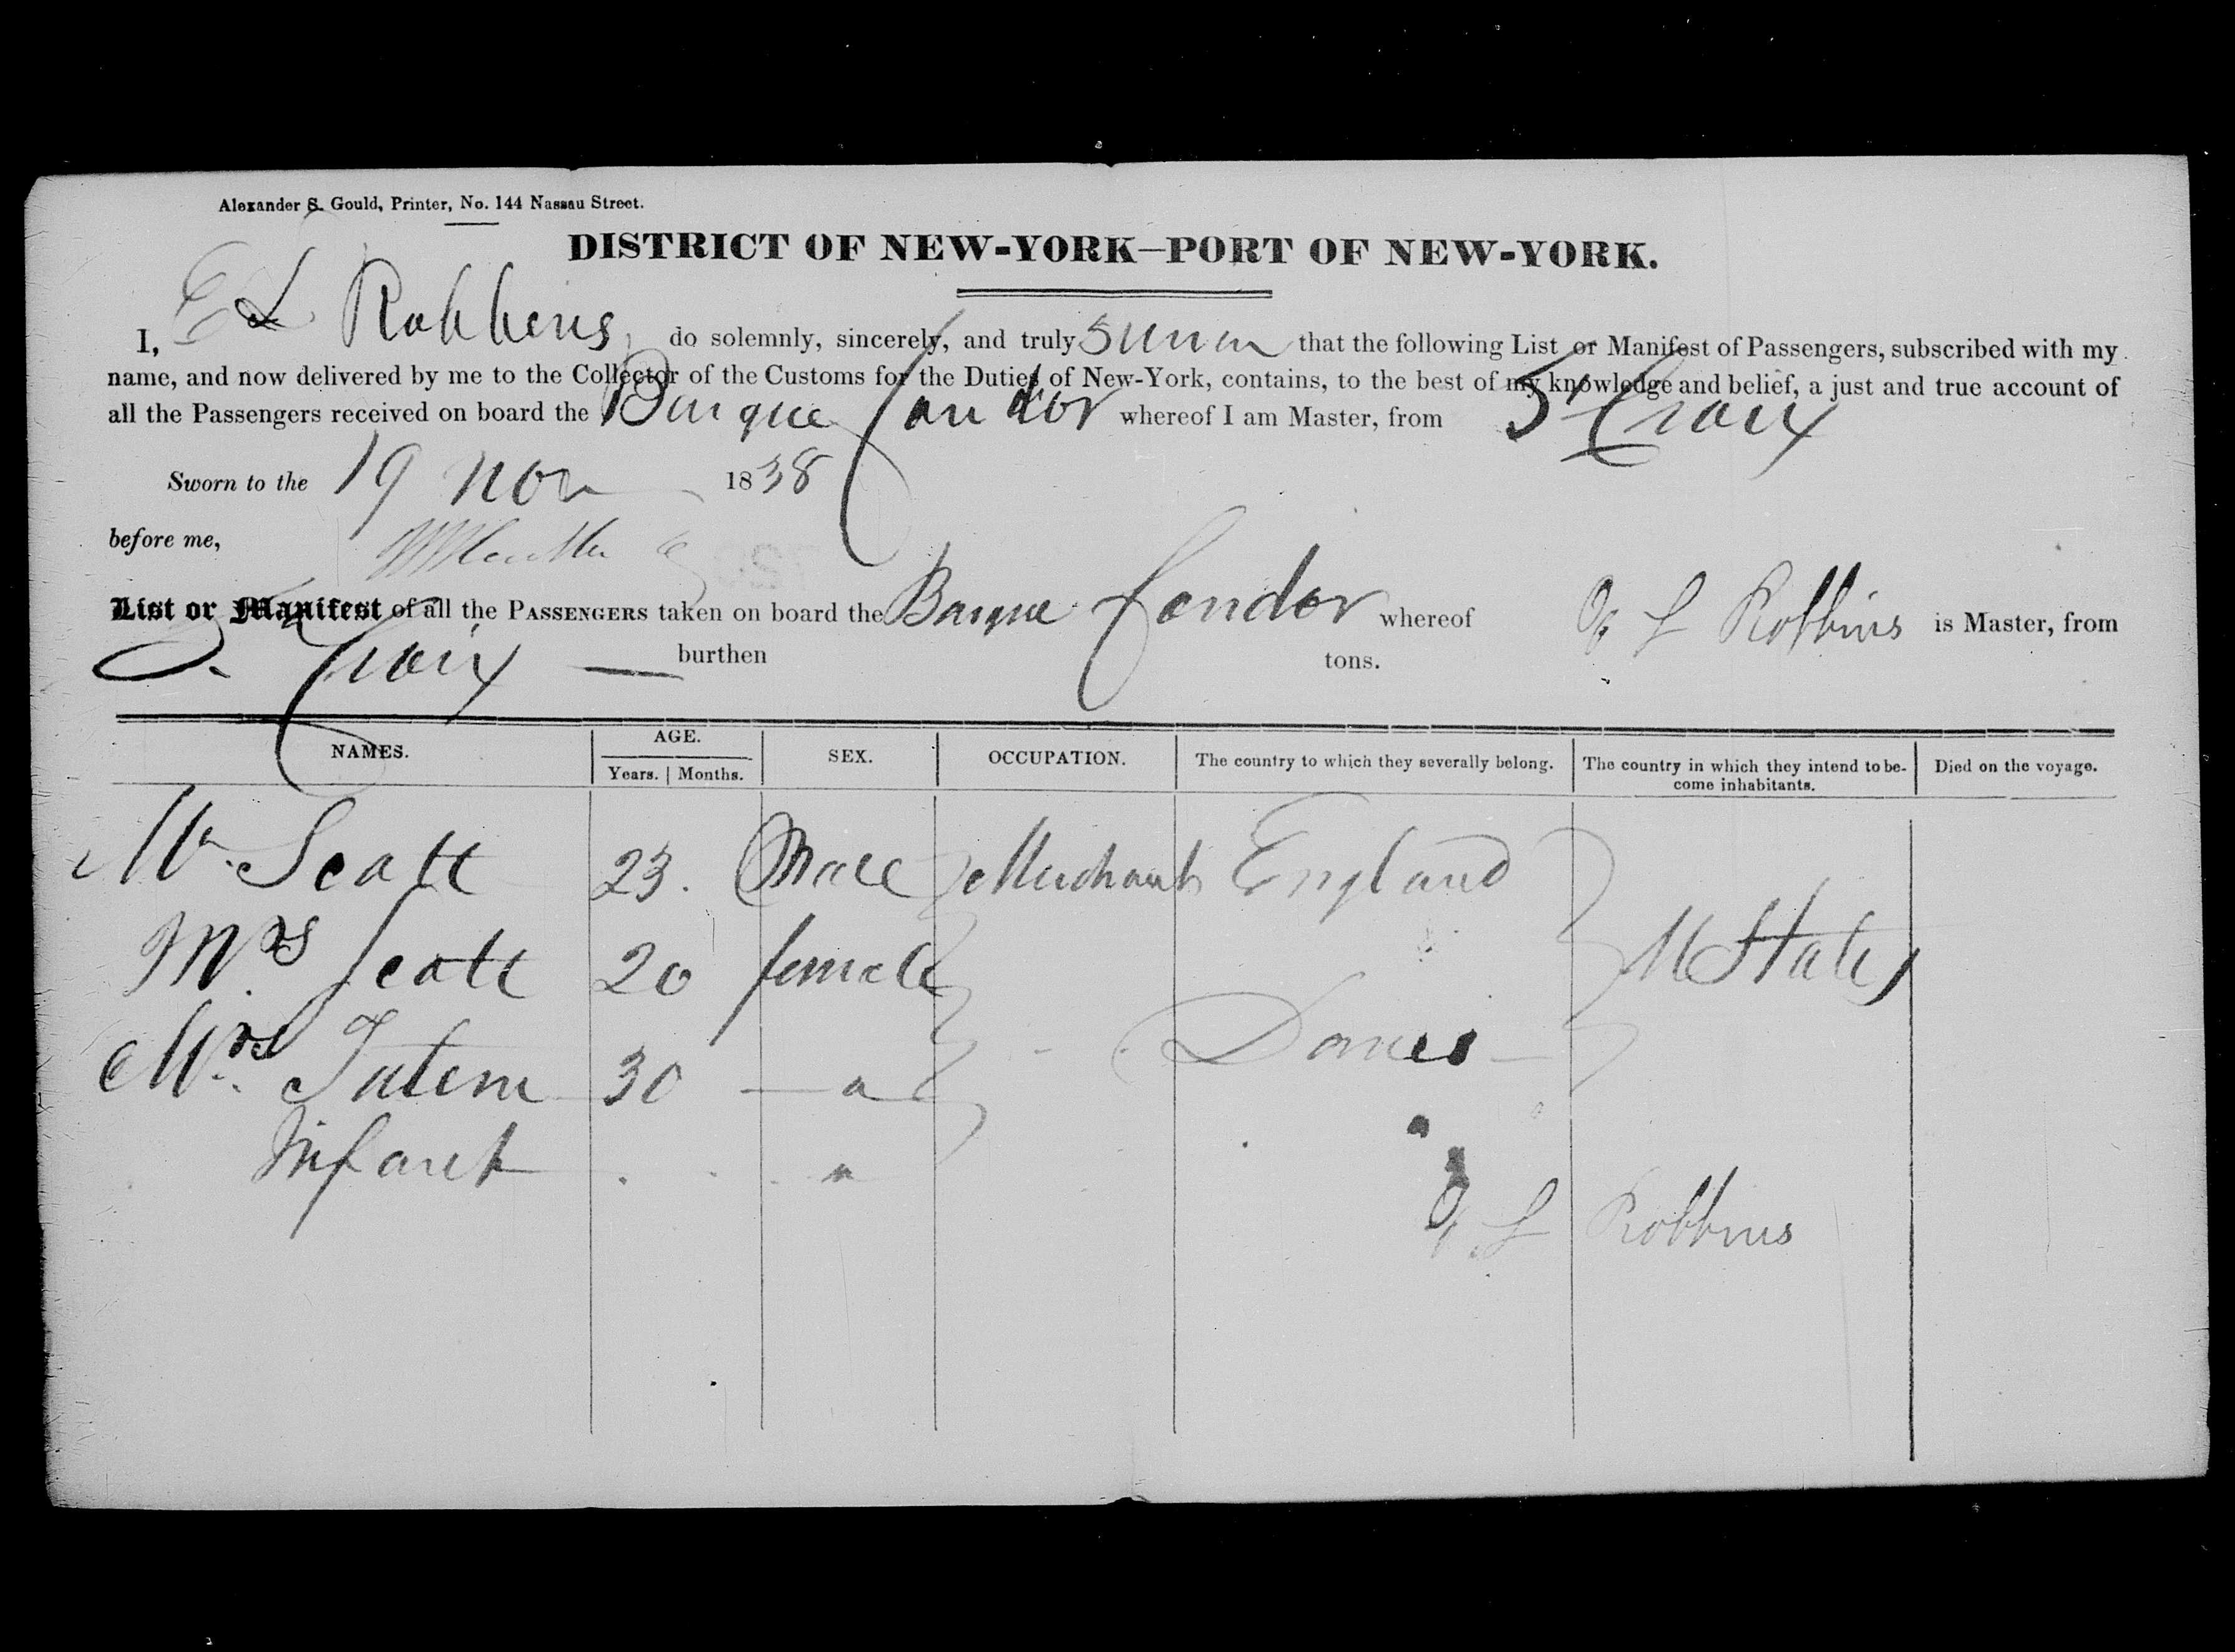 Alexander S. Gould, Printer, No. 144 Nassau Street.
DISTRICT OF NEW-YORK—PORT OF NEW-YORK.
I, E L Robbins, do solemnly, sincerely, and truly swear that the following List or Manifest of Passengers, subscribed with my
name, and now delivered by me to the Collector of the Customs for the Duties of New-York, contains, to the best of my knowledge and belief, a just and true account of
all the Passengers received on board the Barque Condor whereof I am Master, from St Croix
Sworn to the 19 Nov 1838
before me,
List or Manifest of all the PASSENGERS taken on board the Barque Condor whereof L Robbins is Master, from
St Croix — burthen tons.
NAMES. AGE. Years. Months. SEX. OCCUPATION. The country to which they severally belong. The country in which they intend to become inhabitants. Died on the voyage.
Mr. Scott 23. Male Merchant England
Mrs. Scott 20 female U States
Mrs. Tutem 30 — " Danes —
Infant . . . " "
L Robbins